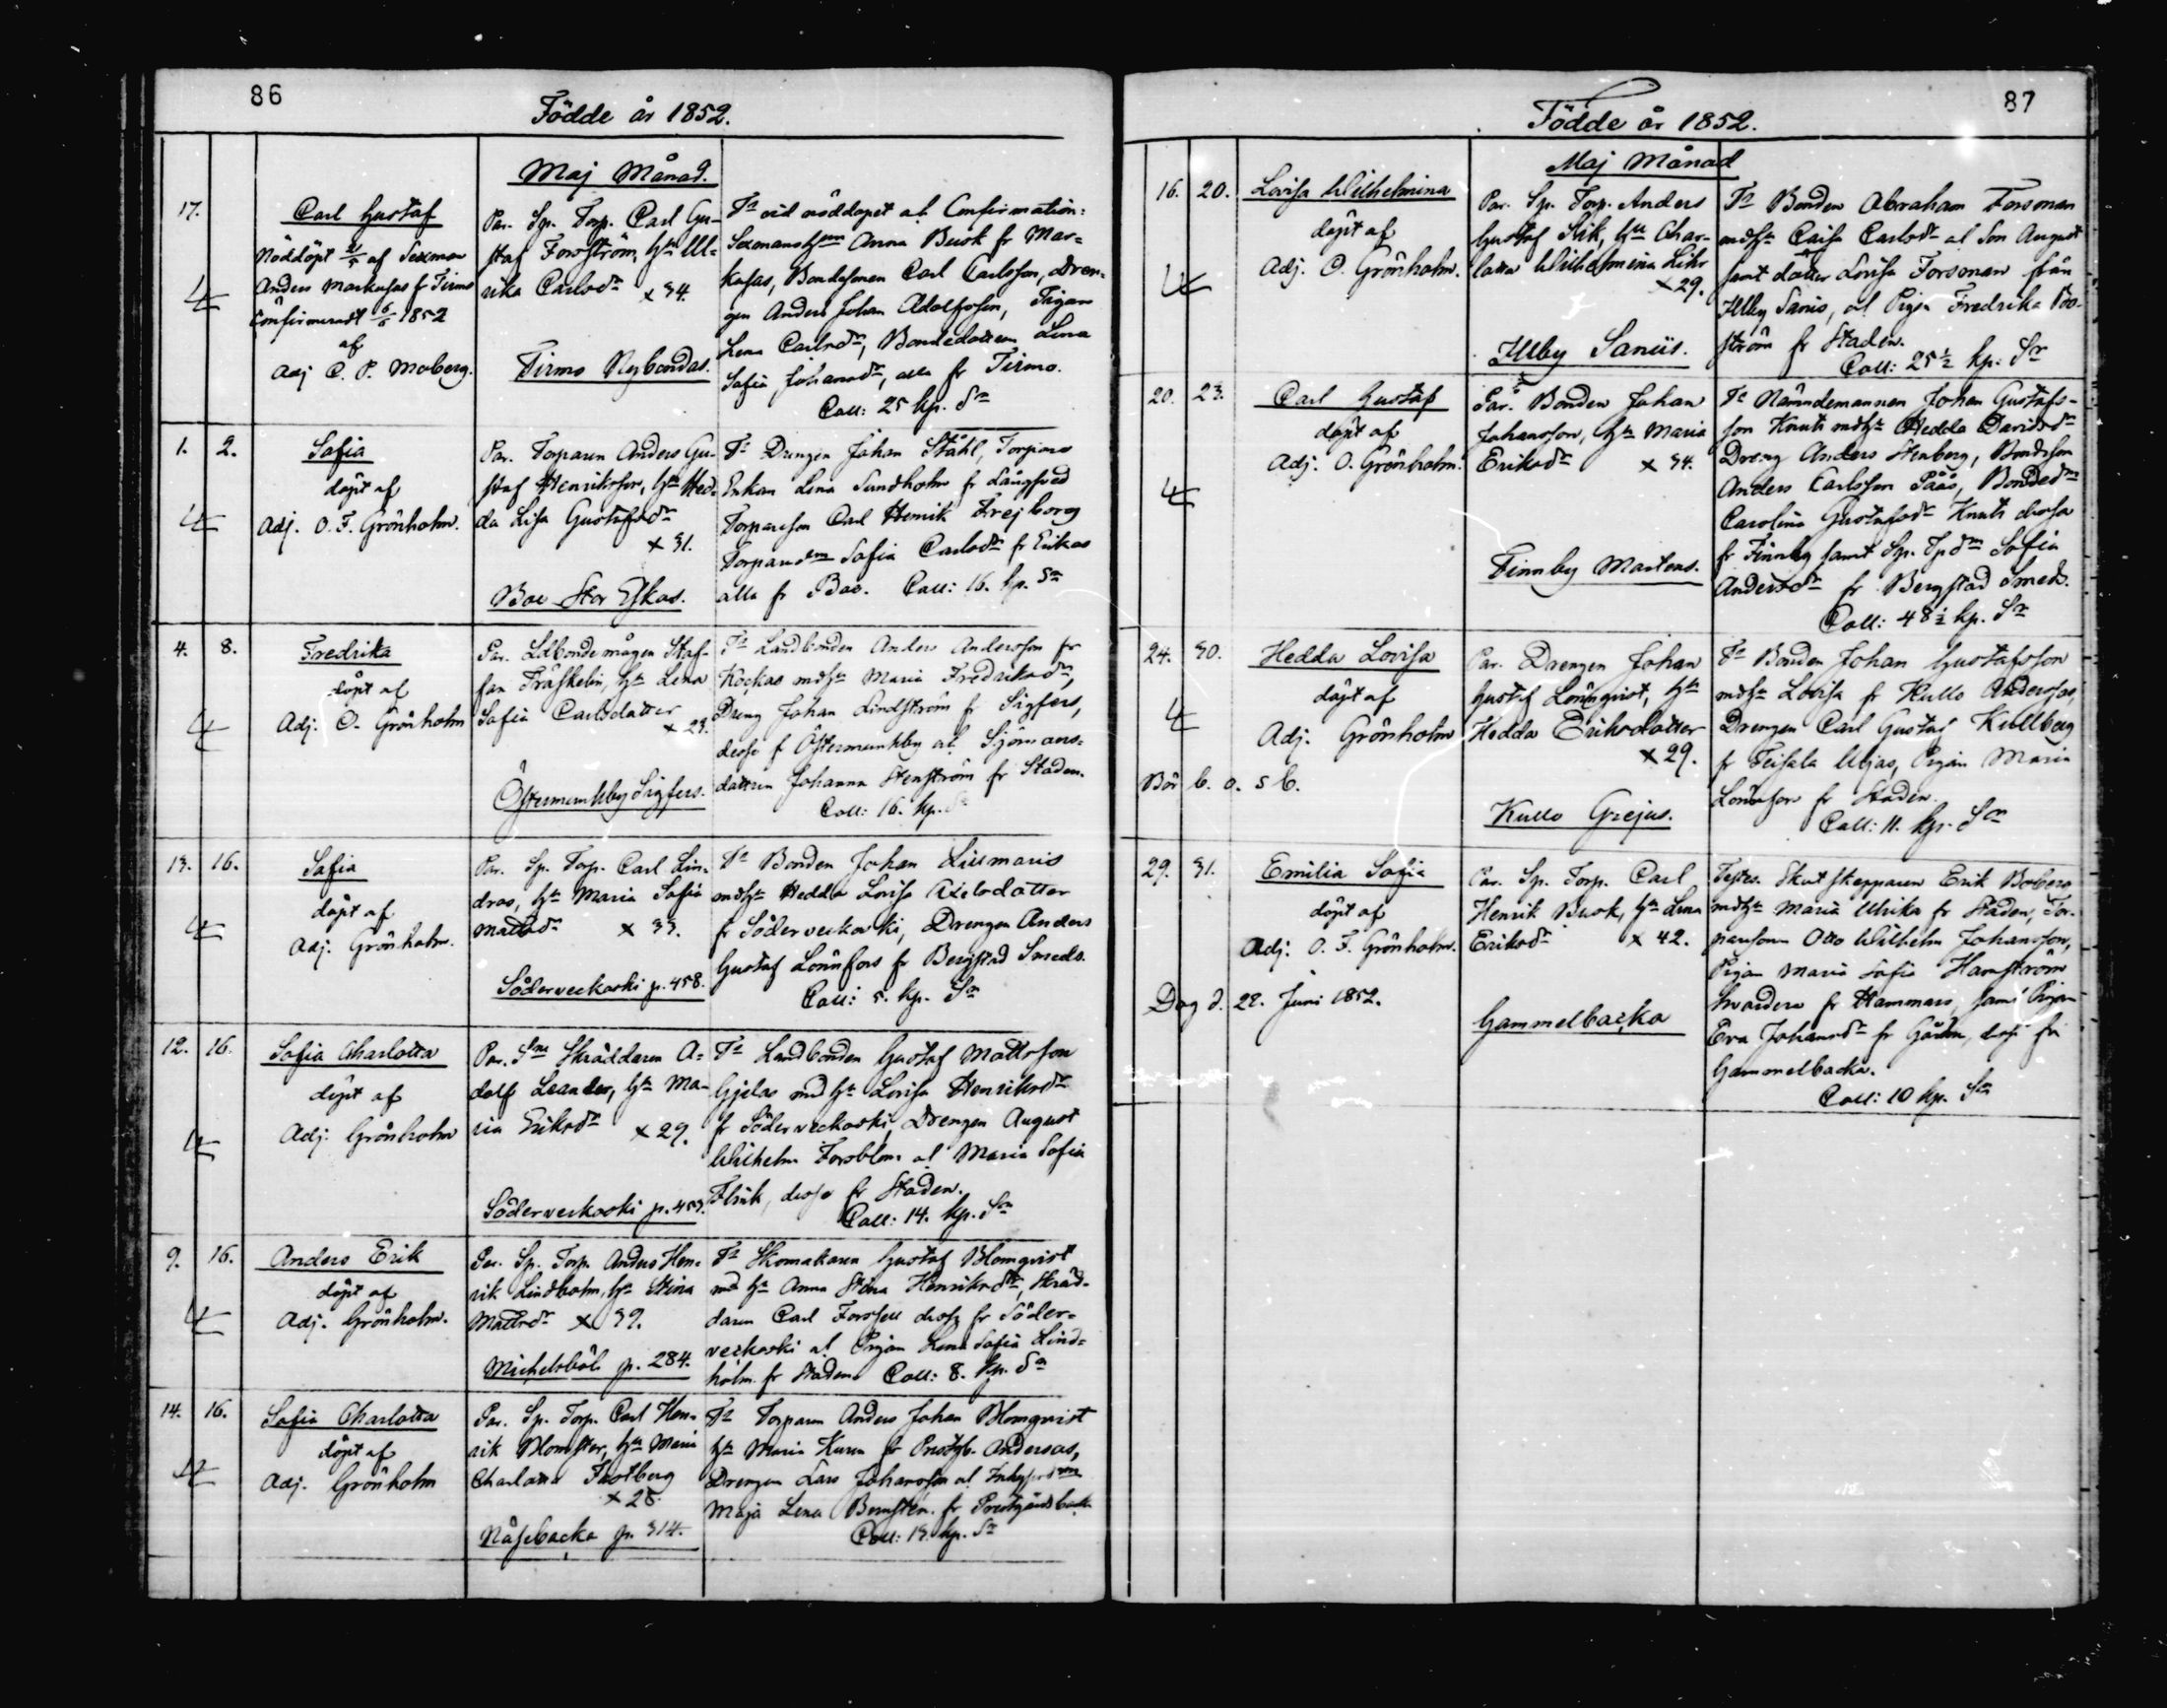 86
Födde år 1852.
Maj Månad.
17.
Carl Gustaf
Nöddöpt 21/5 af Sexman
Anders Markusas fr Tirmo
Confirmeradt 6/6 1852
af
Adj C. P. Moberg.
Par. Sp. Torp. Carl Gu-
staf Forsström, hu Ul-
rika Carlsdr x 34.
Tirmo Nybondas.
Ts vid nöddopet al. Confirmation:
Sexmanshun Anna Busk fr Mar-
kusas, Bondesonen Carl Carlsson, Dren-
gen Anders Johan Adolfsson, Pigan
Lena Carlsdr, Bondedottren Lena
Sofia Johansdr, alla fr Tirmo.
Coll: 25 kp. Sr
1. 2.
Sofia
döpt af
Adj. O. F. Grönholm.
Par. Torparen Anders Gu-
staf Henriksson, hu Hed-
da Lisa Gustafsdr
x 31.
Boe Stor Eskas.
Ts Drengen Johan Ståhl, Torpare
Enkan Lena Sundholm fr Långsved
Torparson Carl Henrik Frejborg
Torparedrn Sofia Carlsdr fr Erikas
alla fr Boe. Coll: 16. kp. Sr
4. 8.
Fredrika
döpt af
Adj. O. Grönholm
Par. Ldbondemågen Staf-
fan Träskelin, hu Lena
Sofia Carlsdotter
x 23.
Östermunkby Sigfers.
Ts Landbonden Anders Andersson fr
Kockas mdhu Maria Fredriksdr,
Dreng Johan Lindström fr Sigfers,
desse f Östermunkby al. Sjömans-
dottren Johanna Stenström fr Staden.
Coll: 16. kp. Sr
13. 16.
Sofia
döpt af
Adj. Grönholm.
Par. Sp. Torp. Carl Lin-
dros, hu Maria Sofia
Mattsdr x 33.
Söderveckoski p. 458.
Ts Bonden Johan Liliemaris
mdhu Hedda Lovisa Axelsdotter
fr Söderveckoski, Drengen Anders
Gustaf Lönnfors fr Bergstad Smeds.
Coll: 5. kp. Sr
12. 16.
Sofia Charlotta
döpt af
Adj. Grönholm
Par. Sne Skräddaren A-
dolf Leander, hu Ma-
ria Eriksdr x 29.
Söderveckoski p. 453.
Ts Landbonden Gustaf Mattsson
Gjelas md hu Lovisa Henriksdr
fr Söderveckoski, Drengen August
Wilhelm Forsblom al Maria Sofia
Flink, desse fr Staden.
Coll: 14. kp. Sr
9. 16.
Anders Erik
döpt af
Adj. Grönholm.
Par. Sp. Torp. Anders Hen-
rik Lindholm, hu Stina
Mattsdr x 39.
Michelsböle p. 284.
Ts Skomakaren Gustaf Blomqvist
md hu Anna Stina Henriksdr, Skräd-
daren Carl Forssell desse fr Söder-
veckoski al Pigan Lena Sofia Lind-
holm fr Staden. Coll: 8. kp. Sr
14. 16.
Sofia Charlotta
döpt af
Adj. Grönholm
Par. Sp. Torp. Carl Hen-
rik Blomster, hu Maria
Charlotta Frostberg
x 28.
Näsebacka p. 314.
Ts Torparen Anders Johan Blomqvist
hu Maria Karin fr Prestgb. Andersas,
Drengen Lars Johansson al
Maja Lena Bernsten fr Prestgårdsbacka
Coll: 13. kp. Sr
87
Födde år 1852.
Maj Månad
16. 20.
Lovisa Wilhelmina
döpt af
Adj. O. Grönholm.
Par. Sp. Torp. Anders
Gustaf Slik, hu Char-
lotta Wilhelmina Lihr
x 29.
Illby Saniis.
Ts Bonden Abraham Forsman
mdhu Caisa Carlsdr al Son August
samt dotter Lovisa Forsman från
Illby Saniis, al Pigan Fredrika Bo-
ström fr Staden.
Coll: 25½ kp. Sr
20. 23.
Carl Gustaf
döpt af
Adj. O. Grönholm.
Par. Bonden Johan
Johansson, hu Maria
Eriksdr x 34.
Finnby Martens.
Ts Nämndemannen Johan Gustafs-
son Knuts mdhu Hedda Davidsdr
Dreng Anders Stenberg, Bondeson
Anders Carlsson Påås, Bondedrn
Carolina Gustafsdr Knuts desse
fr Finnby samt Sp. Tpdrn Sofia
Andersdr fr Bergstad Smeds.
Coll: 48½ kp. Sr
24. 30.
Hedda Lovisa
döpt af
Adj. Grönholm
Bör b. o. s b.
Par. Drengen Johan
Gustaf Lönnqvist, hu
Hedda Eriksdotter
x 29.
Kullo Grejus.
Ts Bonden Johan Gustafsson
mdhu Lovisa fr Kullo Anderssas,
Drengen Carl Gustaf Kullberg
fr Teisala Uljas, Pigan Maria
Lönnfors fr Staden.
Coll: 11. kp. Sr
29. 31.
Emilia Sofia
döpt af
Adj. O. F. Grönholm.
Dog d. 22. Juni 1852.
Par. Sp. Torp. Carl
Henrik Busk, hu Lena
Eriksdr x 42.
Gammelbacka
Testes. Skutskepparen Erik Boberg
mdhu Maria Ulrika fr Staden, Tor-
paresonen Otto Wilhelm Johansson,
Pigan Maria Sofia Hamström
fr Hammars, samt Pigan
Eva Johansdr fr Gården, desse fr
Gammelbacka.
Coll: 10 kp. Sr